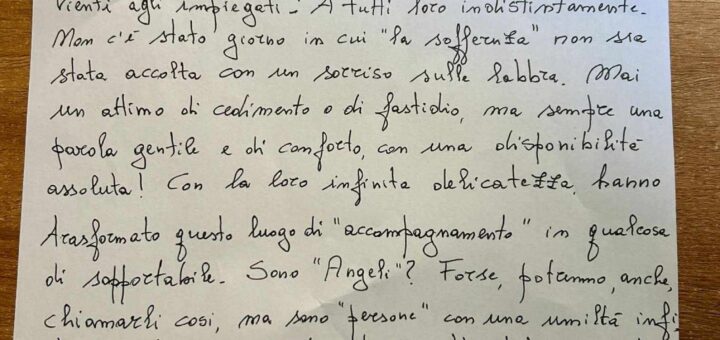 vienti agli impiegati - A tutti loro indistintamente.
Non c'è stato giorno in cui "la sofferenza" non sia
stata accolta con un sorriso sulle labbra. Mai
un attimo di cedimento o di fastidio, ma sempre una
parola gentile e di conforto, con una disponibilità
assoluta! Con la loro infinita delicatezza, hanno
trasformato questo luogo di "accompagnamento" in qualcosa
di sopportabile. Sono "Angeli"? Forse, potranno, anche,
chiamarli così, ma sono "persone" con una umiltà infi-